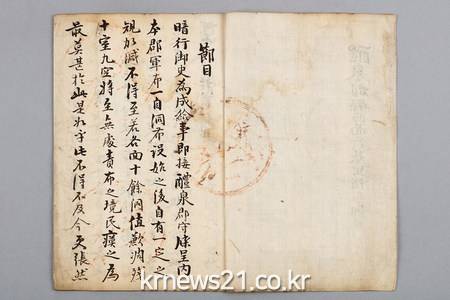 節目
暗行御史為成給事即接醴泉郡守牒呈内
本郡軍布一自洞布設始之後自有一定之
規加減不得至若各面十餘洞值歉凋
十室九空將至無處責布之境民瘼之為
最莫甚於此是如乎此不得不及今更張然
krnews21.co.kr